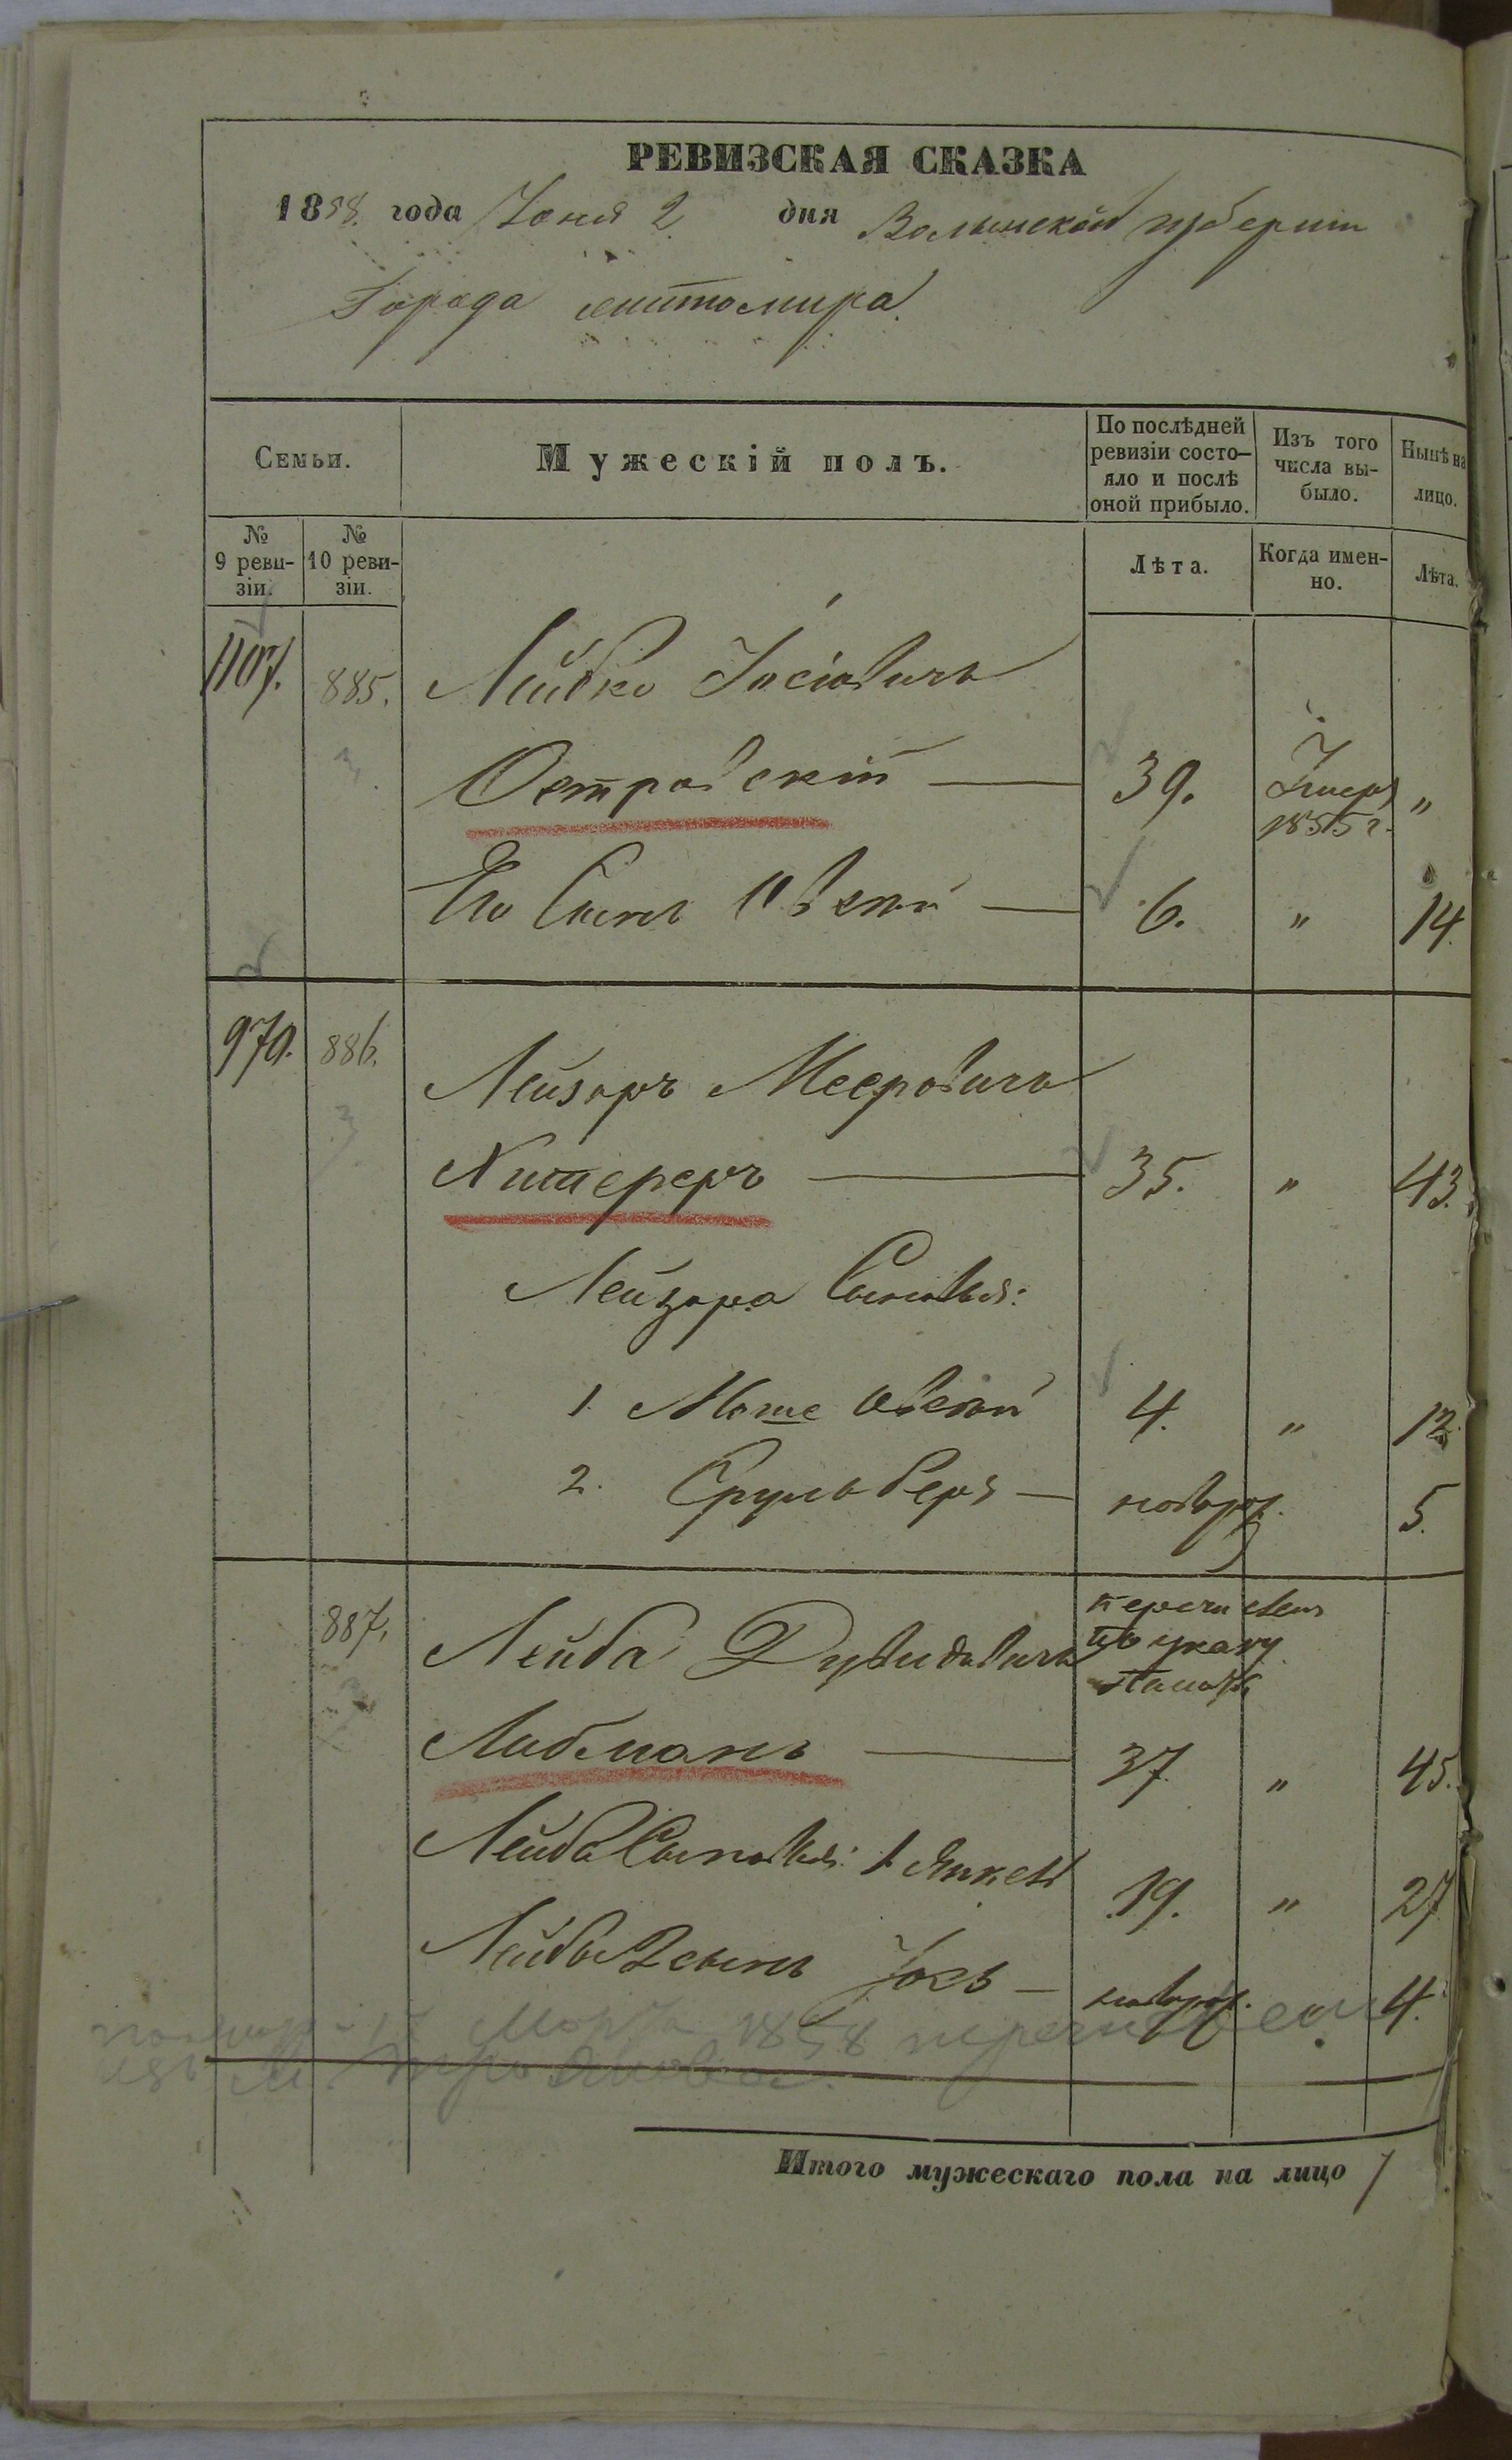 РЕВИЗСКАЯ СКАЗКА
1858 года Іюня 2 дня Волынской губерніи
Города Житомира.
Семьи.
Мужескій полъ.
По послѣдней ревизіи состо-яло и послѣ оной прибыло.
Изъ того числа вы-было.
Нынѣ на лицо.
№ 9 реви-зіи.
№ 10 реви-зіи.
Лѣта.
Когда имен-но.
Лѣта.
1107. 885. Лейбко Іосіовичъ
Островскій — 39. 1855 г. "
Его Сынъ — 6. " 14.
970. 886. Лейзоръ Мееровичъ
Хитереръ — 35. " 43.
Лейзора Сыновья:
1. Моше 4. " 12.
2. Сруль Беръ — новорож. 5.
887. Лейба Дувидовичъ перечисленъ по указу палаты
Либманъ — 37 " 45.
Лейбы Сыновья: 1 Янкель 19. " 27
Лейбы 2 сынъ Іось — новорож. 4.
Марта 1858 перечислен
изъ М. Трояновка.
Итого мужескаго пола на лицо 7